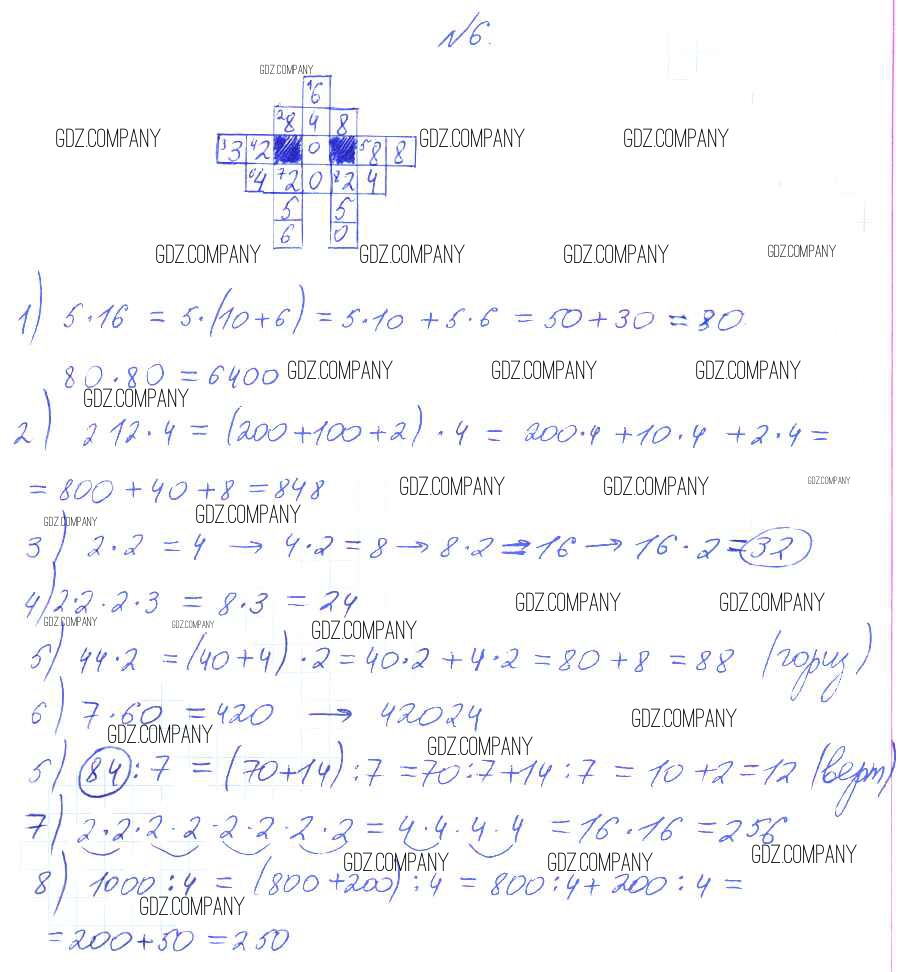 №6.
GDZ.COMPANY
¹6
²8 4 8
GDZ.COMPANY GDZ.COMPANY GDZ.COMPANY
³3 ⁴2 0 ⁵8 8
⁶4 ⁷2 0 ⁸2 4
5 5
6 0
GDZ.COMPANY GDZ.COMPANY GDZ.COMPANY GDZ.COMPANY
1) 5·16 = 5·(10+6) = 5·10 + 5·6 = 50+30 = 80
80·80 = 6400 GDZ.COMPANY GDZ.COMPANY GDZ.COMPANY
GDZ.COMPANY
2) 212·4 = (200+100+2)·4 = 200·4 +10·4 +2·4=
= 800+40+8=848 GDZ.COMPANY GDZ.COMPANY GDZ.COMPANY
GDZ.COMPANY GDZ.COMPANY
3) 2·2 = 4 → 4·2 = 8 → 8·2 = 16 → 16·2 = 32
4) 2·2·2·3 = 8·3 = 24 GDZ.COMPANY GDZ.COMPANY
GDZ.COMPANY GDZ.COMPANY GDZ.COMPANY
5) 44·2 = (40+4)·2 = 40·2 + 4·2 = 80 + 8 = 88 (гориз)
6) 7·60 = 420 → 42024 GDZ.COMPANY
GDZ.COMPANY GDZ.COMPANY
5) 84:7 = (70+14):7 = 70:7+14:7 = 10+2=12 (верт)
7) 2·2·2·2·2·2·2·2 = 4·4·4·4 = 16·16 = 256
GDZ.COMPANY GDZ.COMPANY GDZ.COMPANY
8) 1000:4 = (800+200):4 = 800:4+200:4 =
GDZ.COMPANY
= 200+50 = 250